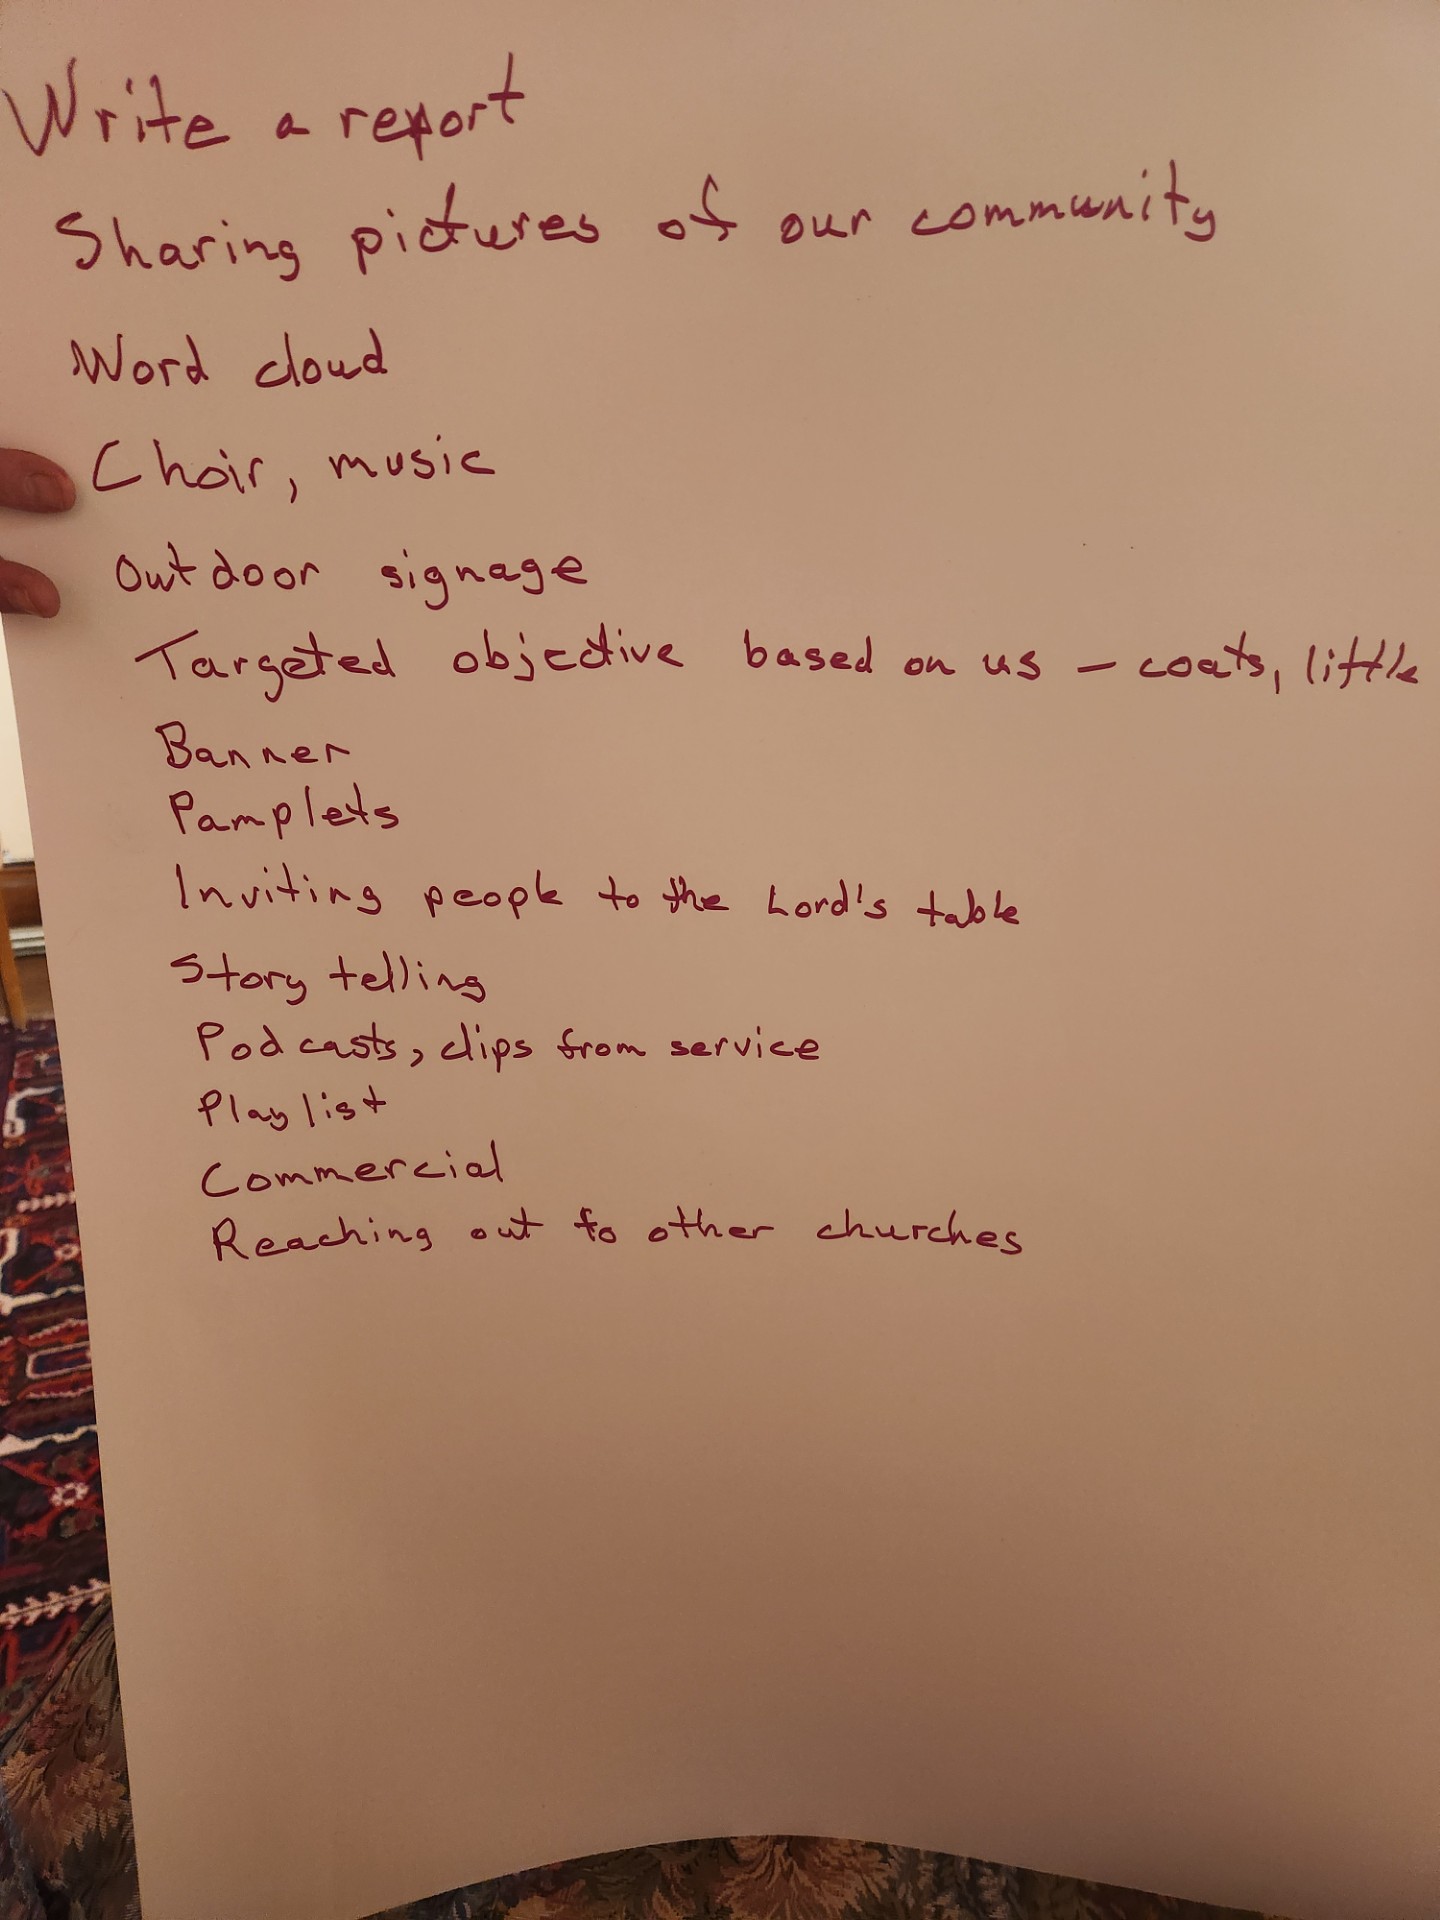 Write a report
Sharing pictures of our community
Word cloud
Choir, music
Outdoor signage
Targeted objective based on us – coats, little
Banner
Pamplets
Inviting people to the Lord's table
Story telling
Podcasts, clips from service
Playlist
Commercial
Reaching out to other churches